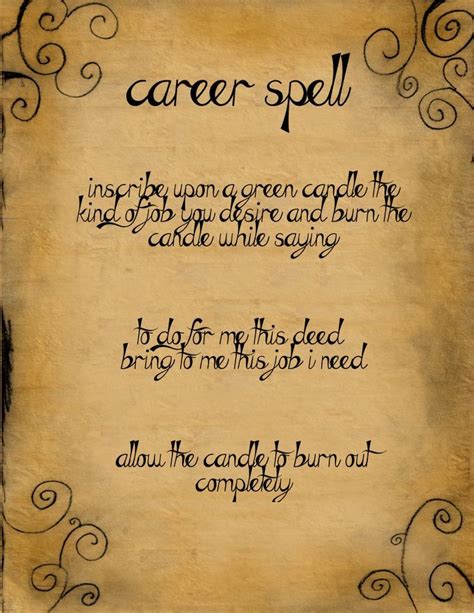 career spell
inscribe upon a green candle the
kind of job you desire and burn the
candle while saying
to do for me this deed
bring to me this job i need
allow the candle to burn out
completely